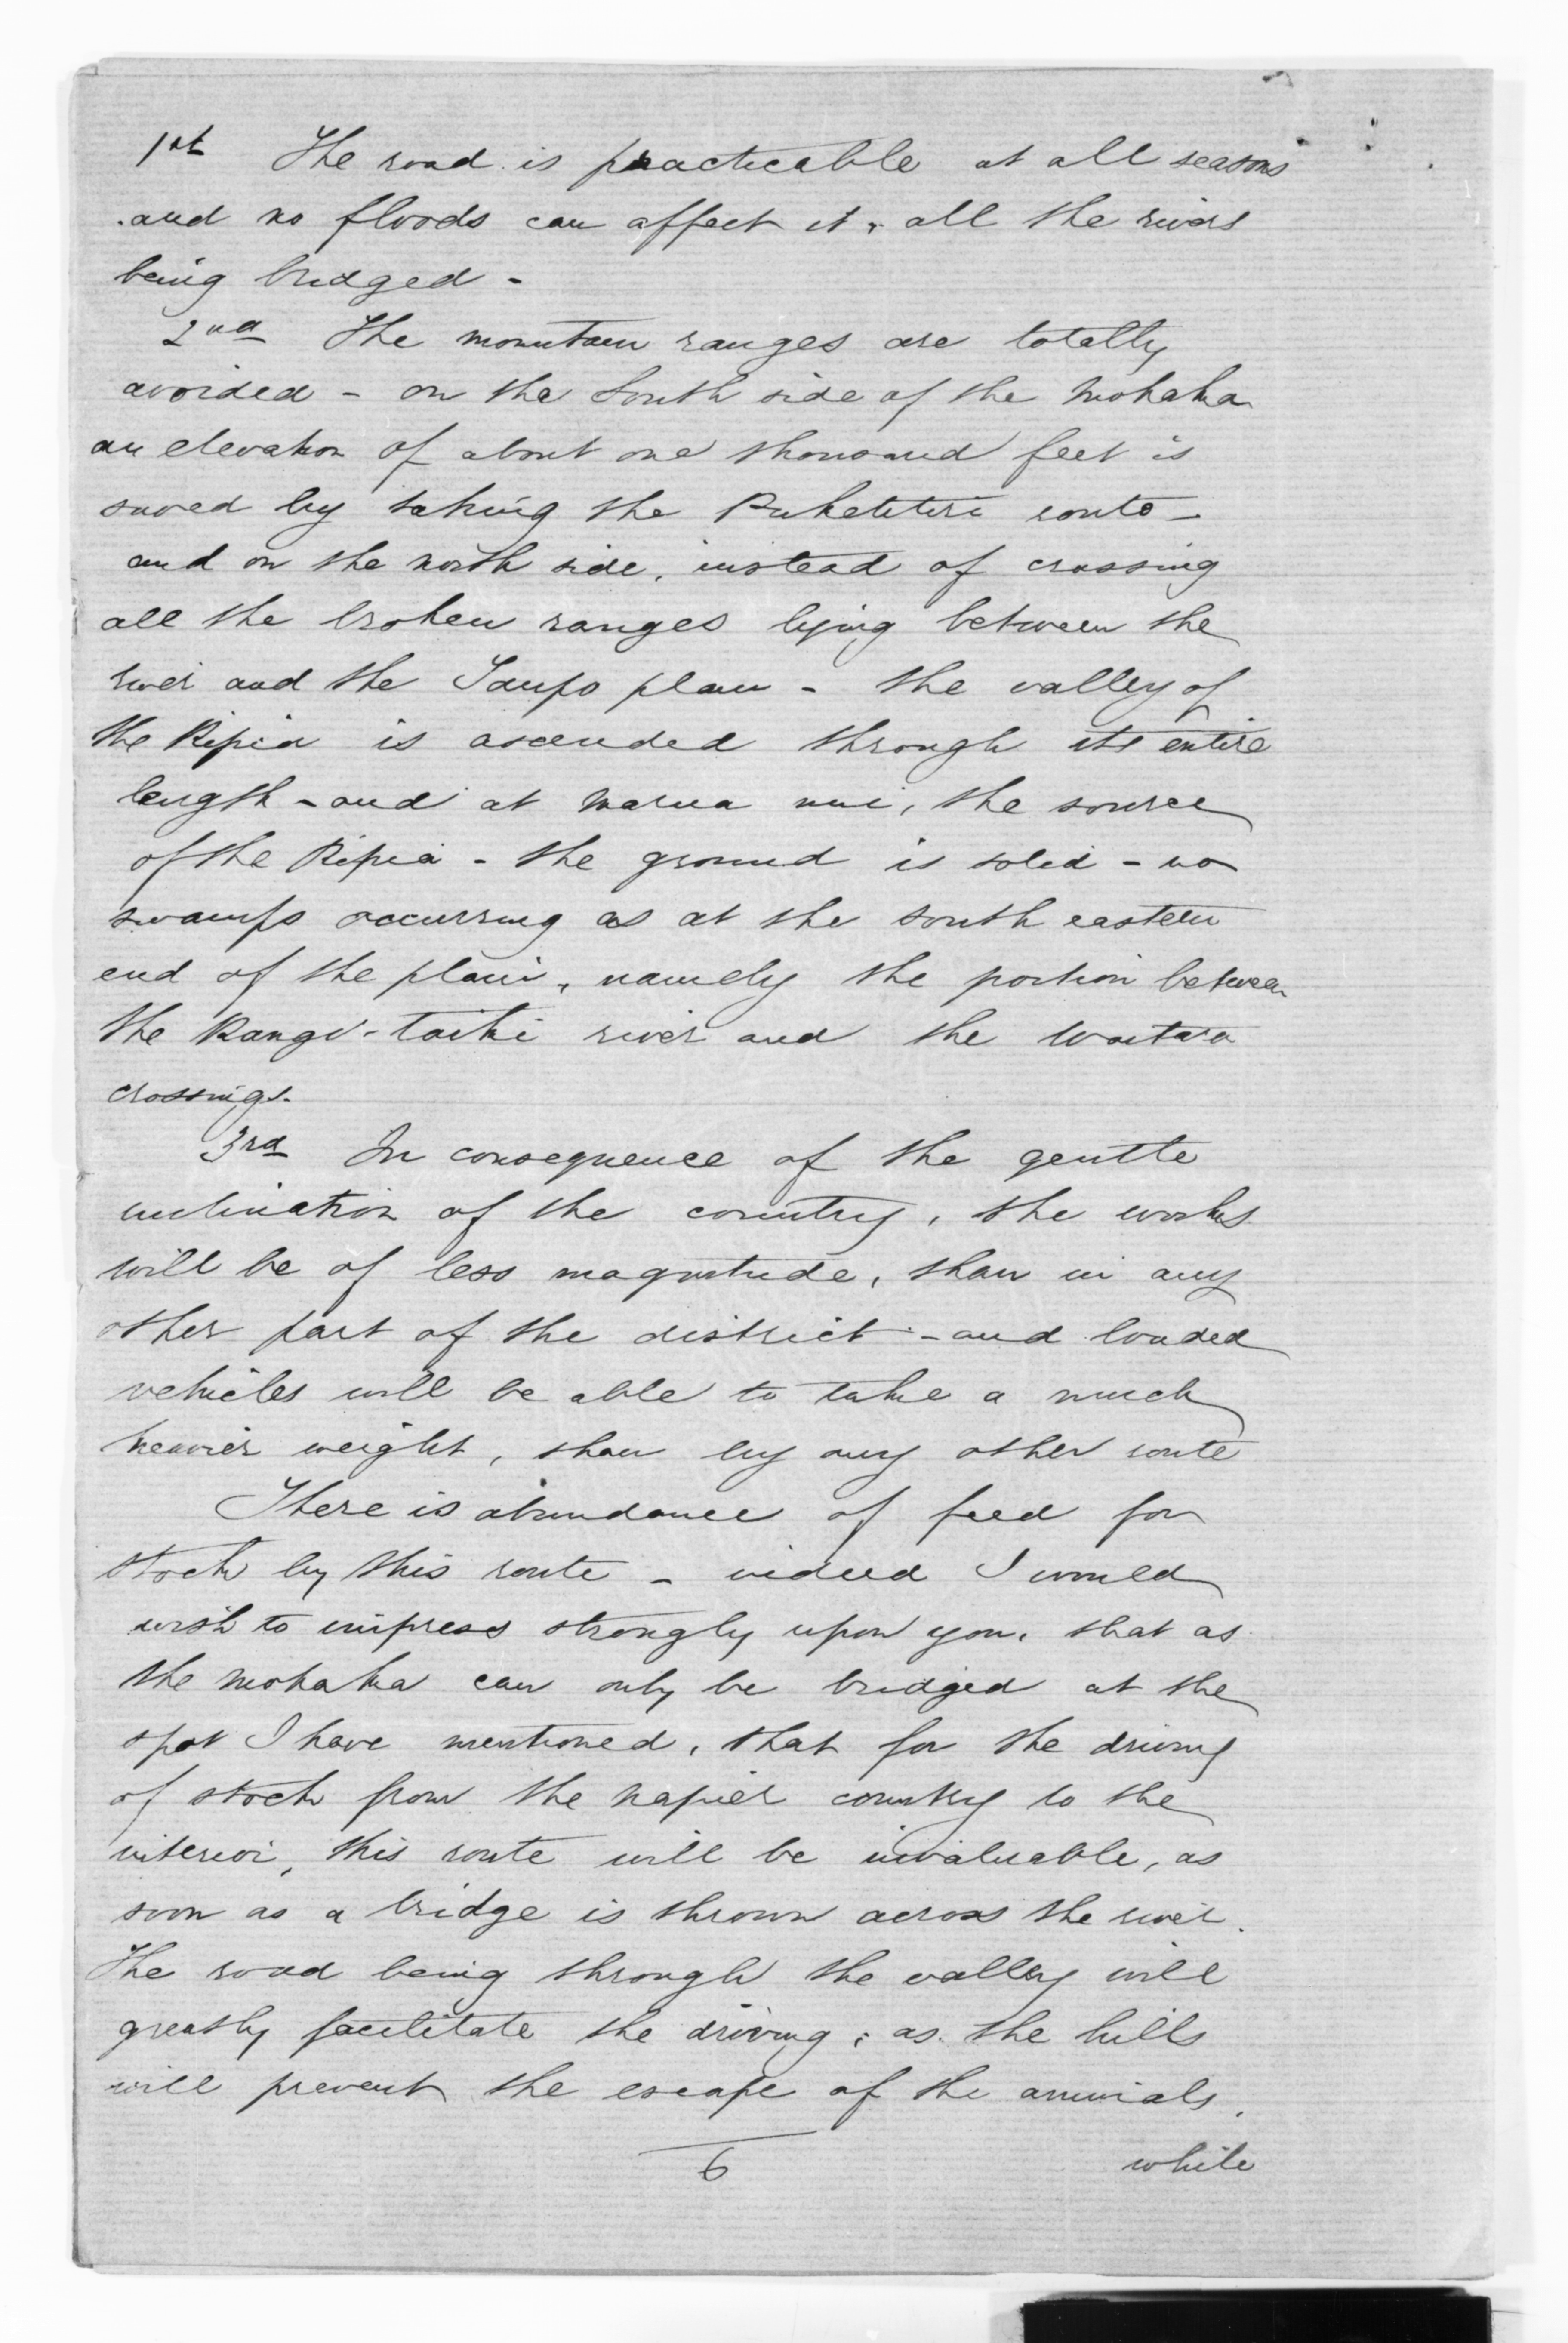 1st The road is practicable at all seasons
and no floods can affect it, all the rivers
being bridged -
2nd The mountain ranges are totally
avoided - on the South side of the Mohaka
an elevation of about one thousand feet is
saved by taking the Puketitiri route -
and on the north side, instead of crossing
all the broken ranges lying between the
river and the Taupo plain - the valley of
the Ripia is ascended through its entire
length - and at Marua nui, the source
of the Ripia - the ground is solid - no
swamps occurring as at the south eastern
end of the plain, namely the portion between
the Rangi-taiki river and the Waitara
crossings.
3rd In consequence of the gentle
inclination of the country, the works
will be of less magnitude, than in any
other part of the district - and loaded
vehicles will be able to take a much
heavier weight, than by any other route
There is abundance of feed for
stock by this route - indeed I would
wish to impress strongly upon you, that as
the Mohaka can only be bridged at the
spot I have mentioned, that for the driving
of stock from the Napier country to the
interior, this route will be invaluable, as
soon as a bridge is thrown across the river.
The road being through the valley will
greatly facilitate the driving; as the hills
will prevent the escape of the animals,
6 while